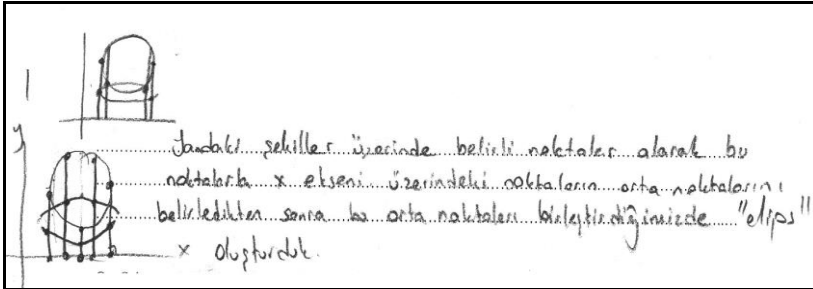 y
Yandaki şekiller üzerinde belirli noktalar alarak bu
noktalarla x ekseni üzerindeki noktaların orta noktalarını
belirledikten sonra bu orta noktaları birleştirdiğimizde "elips"
x oluşturduk.